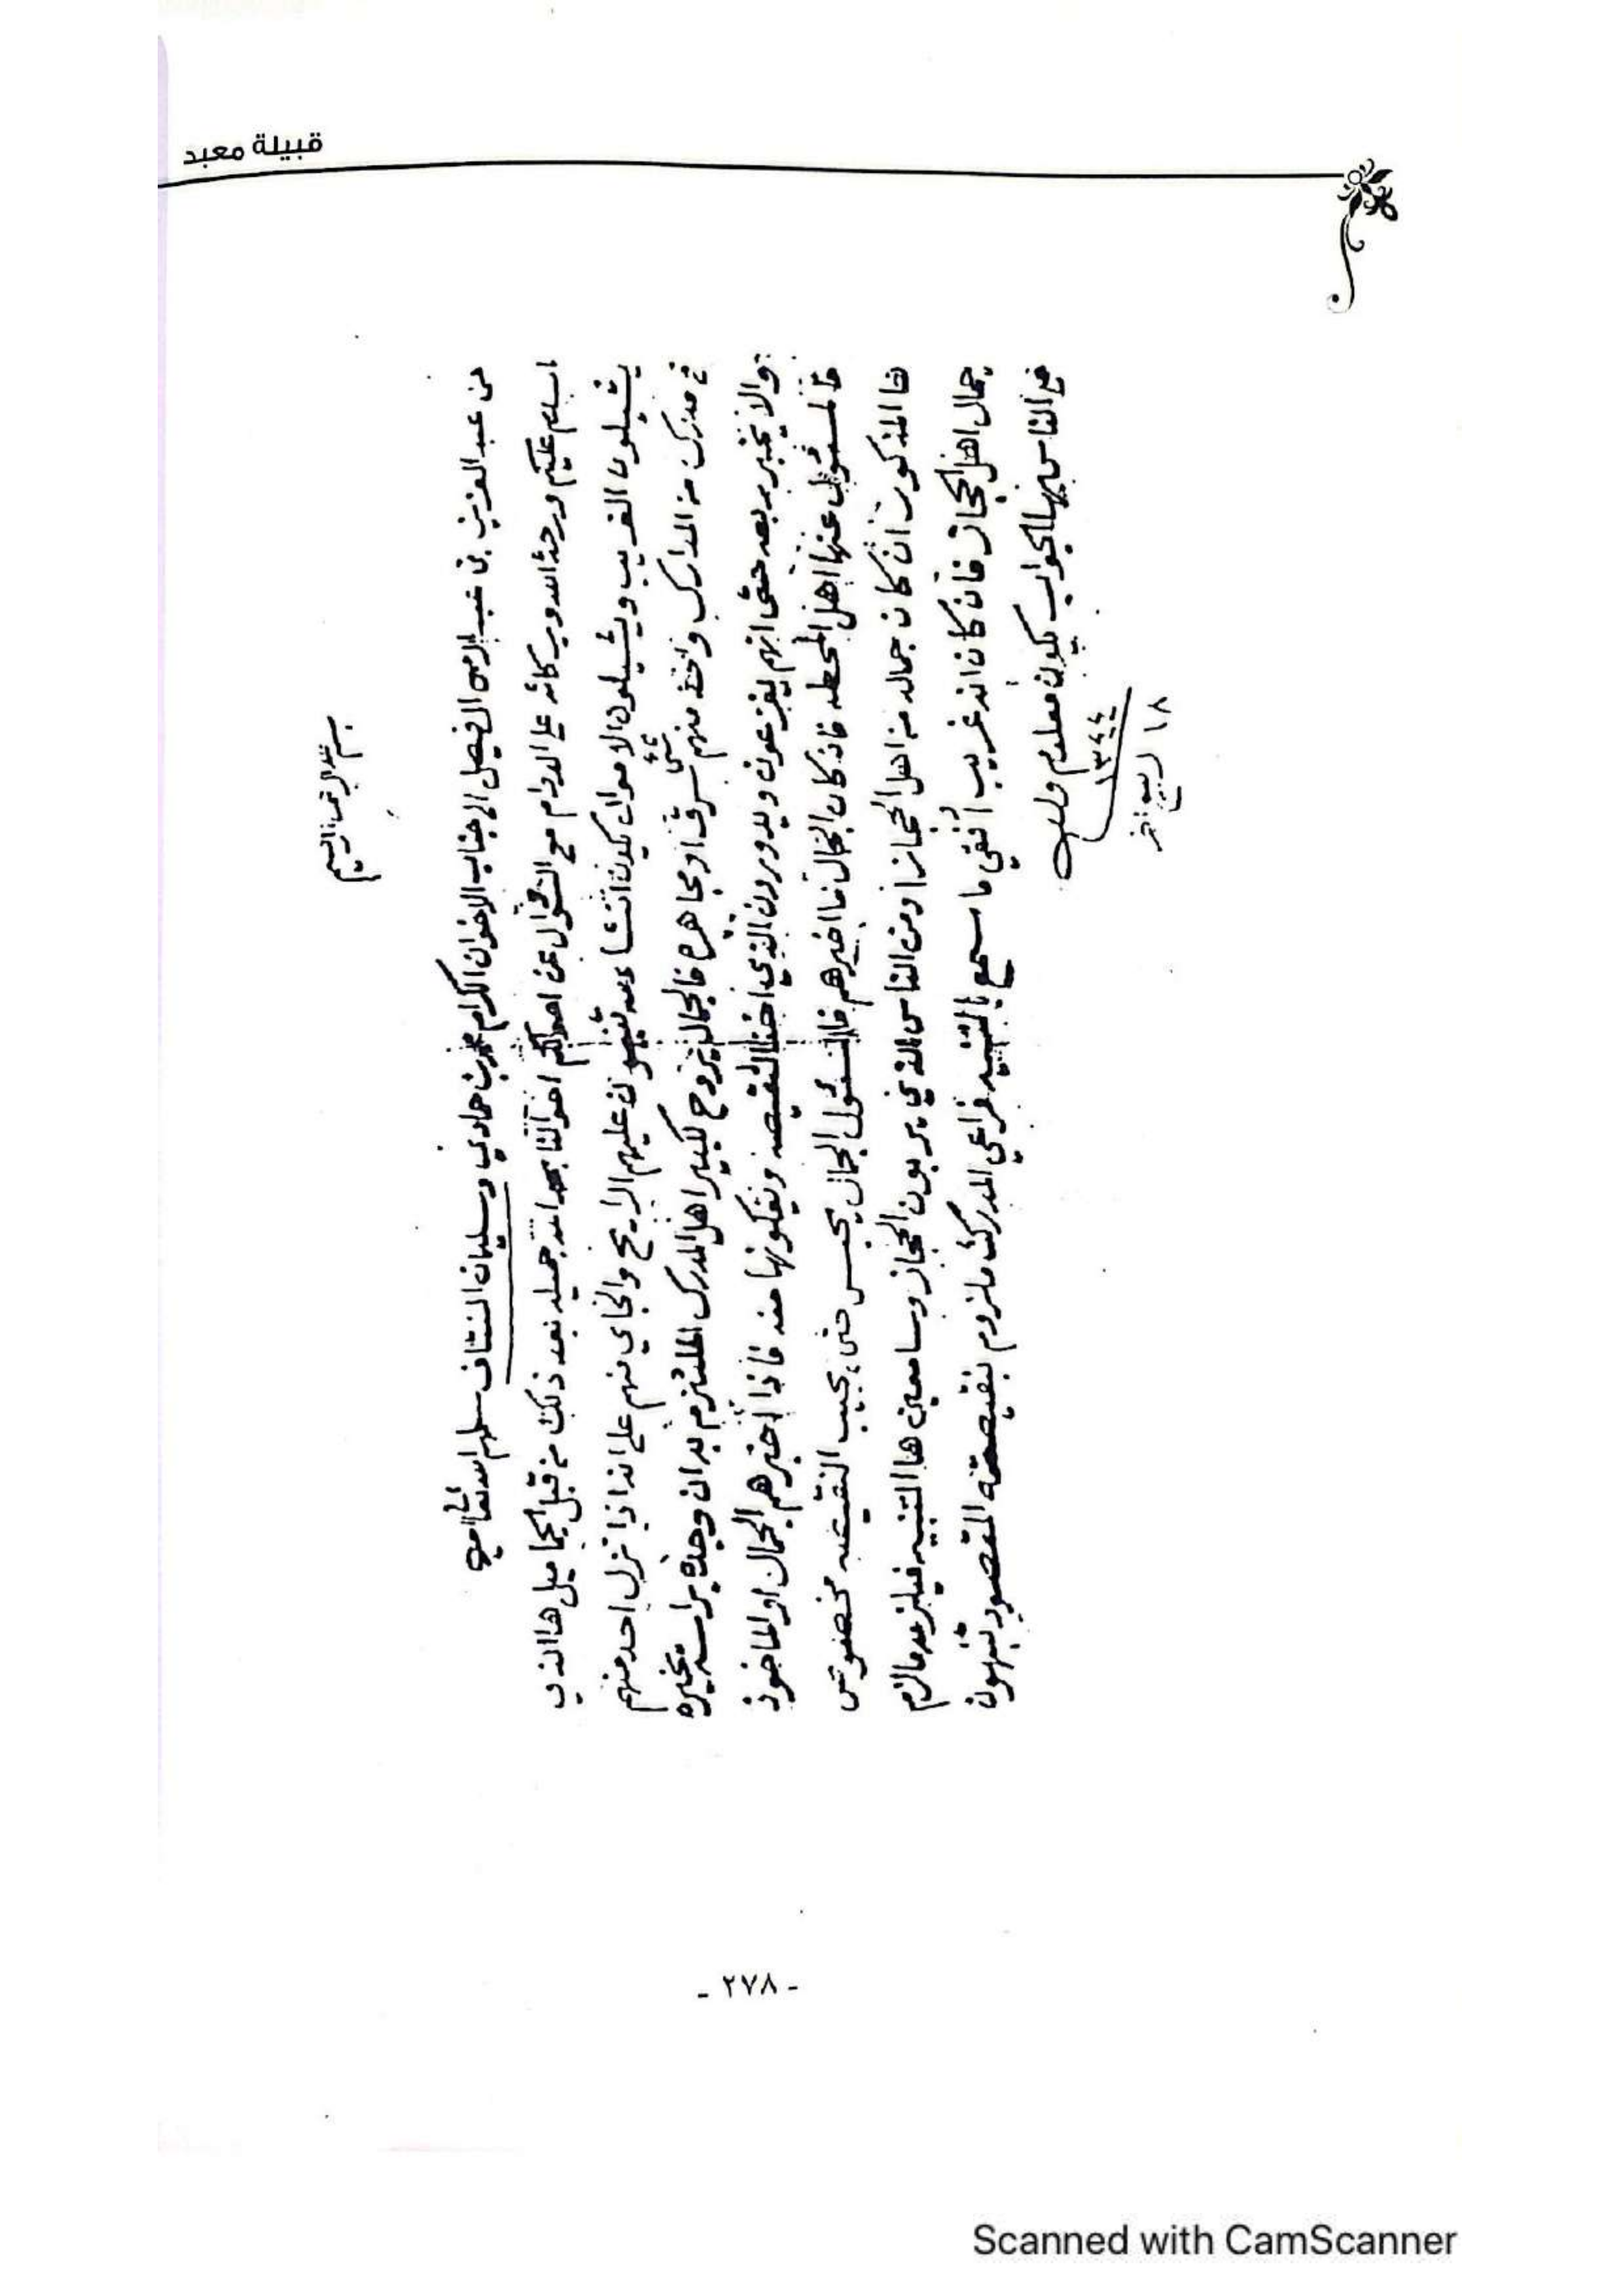 قبيلة معبد
بسم الله الرحمن الرحيم
من عبد العزيز بن عبد الرحمن الفيصل الى جناب الاخوان الكرام محمد بن حمادي وسليمان النتاف سلمهم الله تعالى امين
السلام عليكم ورحمة الله وبركاته على الدوام مع السؤال عن احوالكم احوالنا بحمد الله جميله بعد ذلك من قبل الجماميل ها الذي
يشيلون الغريب ويشيلون الاموال يكون انشاء الله تنبهون عليهم الرايح والجاي منهم على انه اذا نزل احد منهم
في مدرك من المدارك واخذ منهم شي سرق او مجاهره فالجمال يروح لكبير اهل المدرك الملتزم به ان وجده براسه يخبره
والا يخبر ربعه حتى انهم يفزعون ويدورون الذي اخذ النقيصه ويفكونها منه فاذا اخبرهم الجمال او الماخوذ
فالمسئول عنها اهل المحله فاذ كان الجمال ما اخبرهم فالمسئول الجمال يحبس حتى يجيب النقيصه مخصوص
ها المذكور ان كان جماله من اهل الحجاز او من الناس الذي يربون الحجاز وسامعين ها التنبيه فيلزمه ما لزم
جمال اهل الحجاز فان كان انه غريب افقي ما سمع بالتنبيه فراعي المدرك ملزوم بنقيصته المقصود تنبهون
على الناس بهالجواب يكون معلوم والسلام
١٣٤٤
١٨ ربيع اخر
- ٢٧٨ -
Scanned with CamScanner